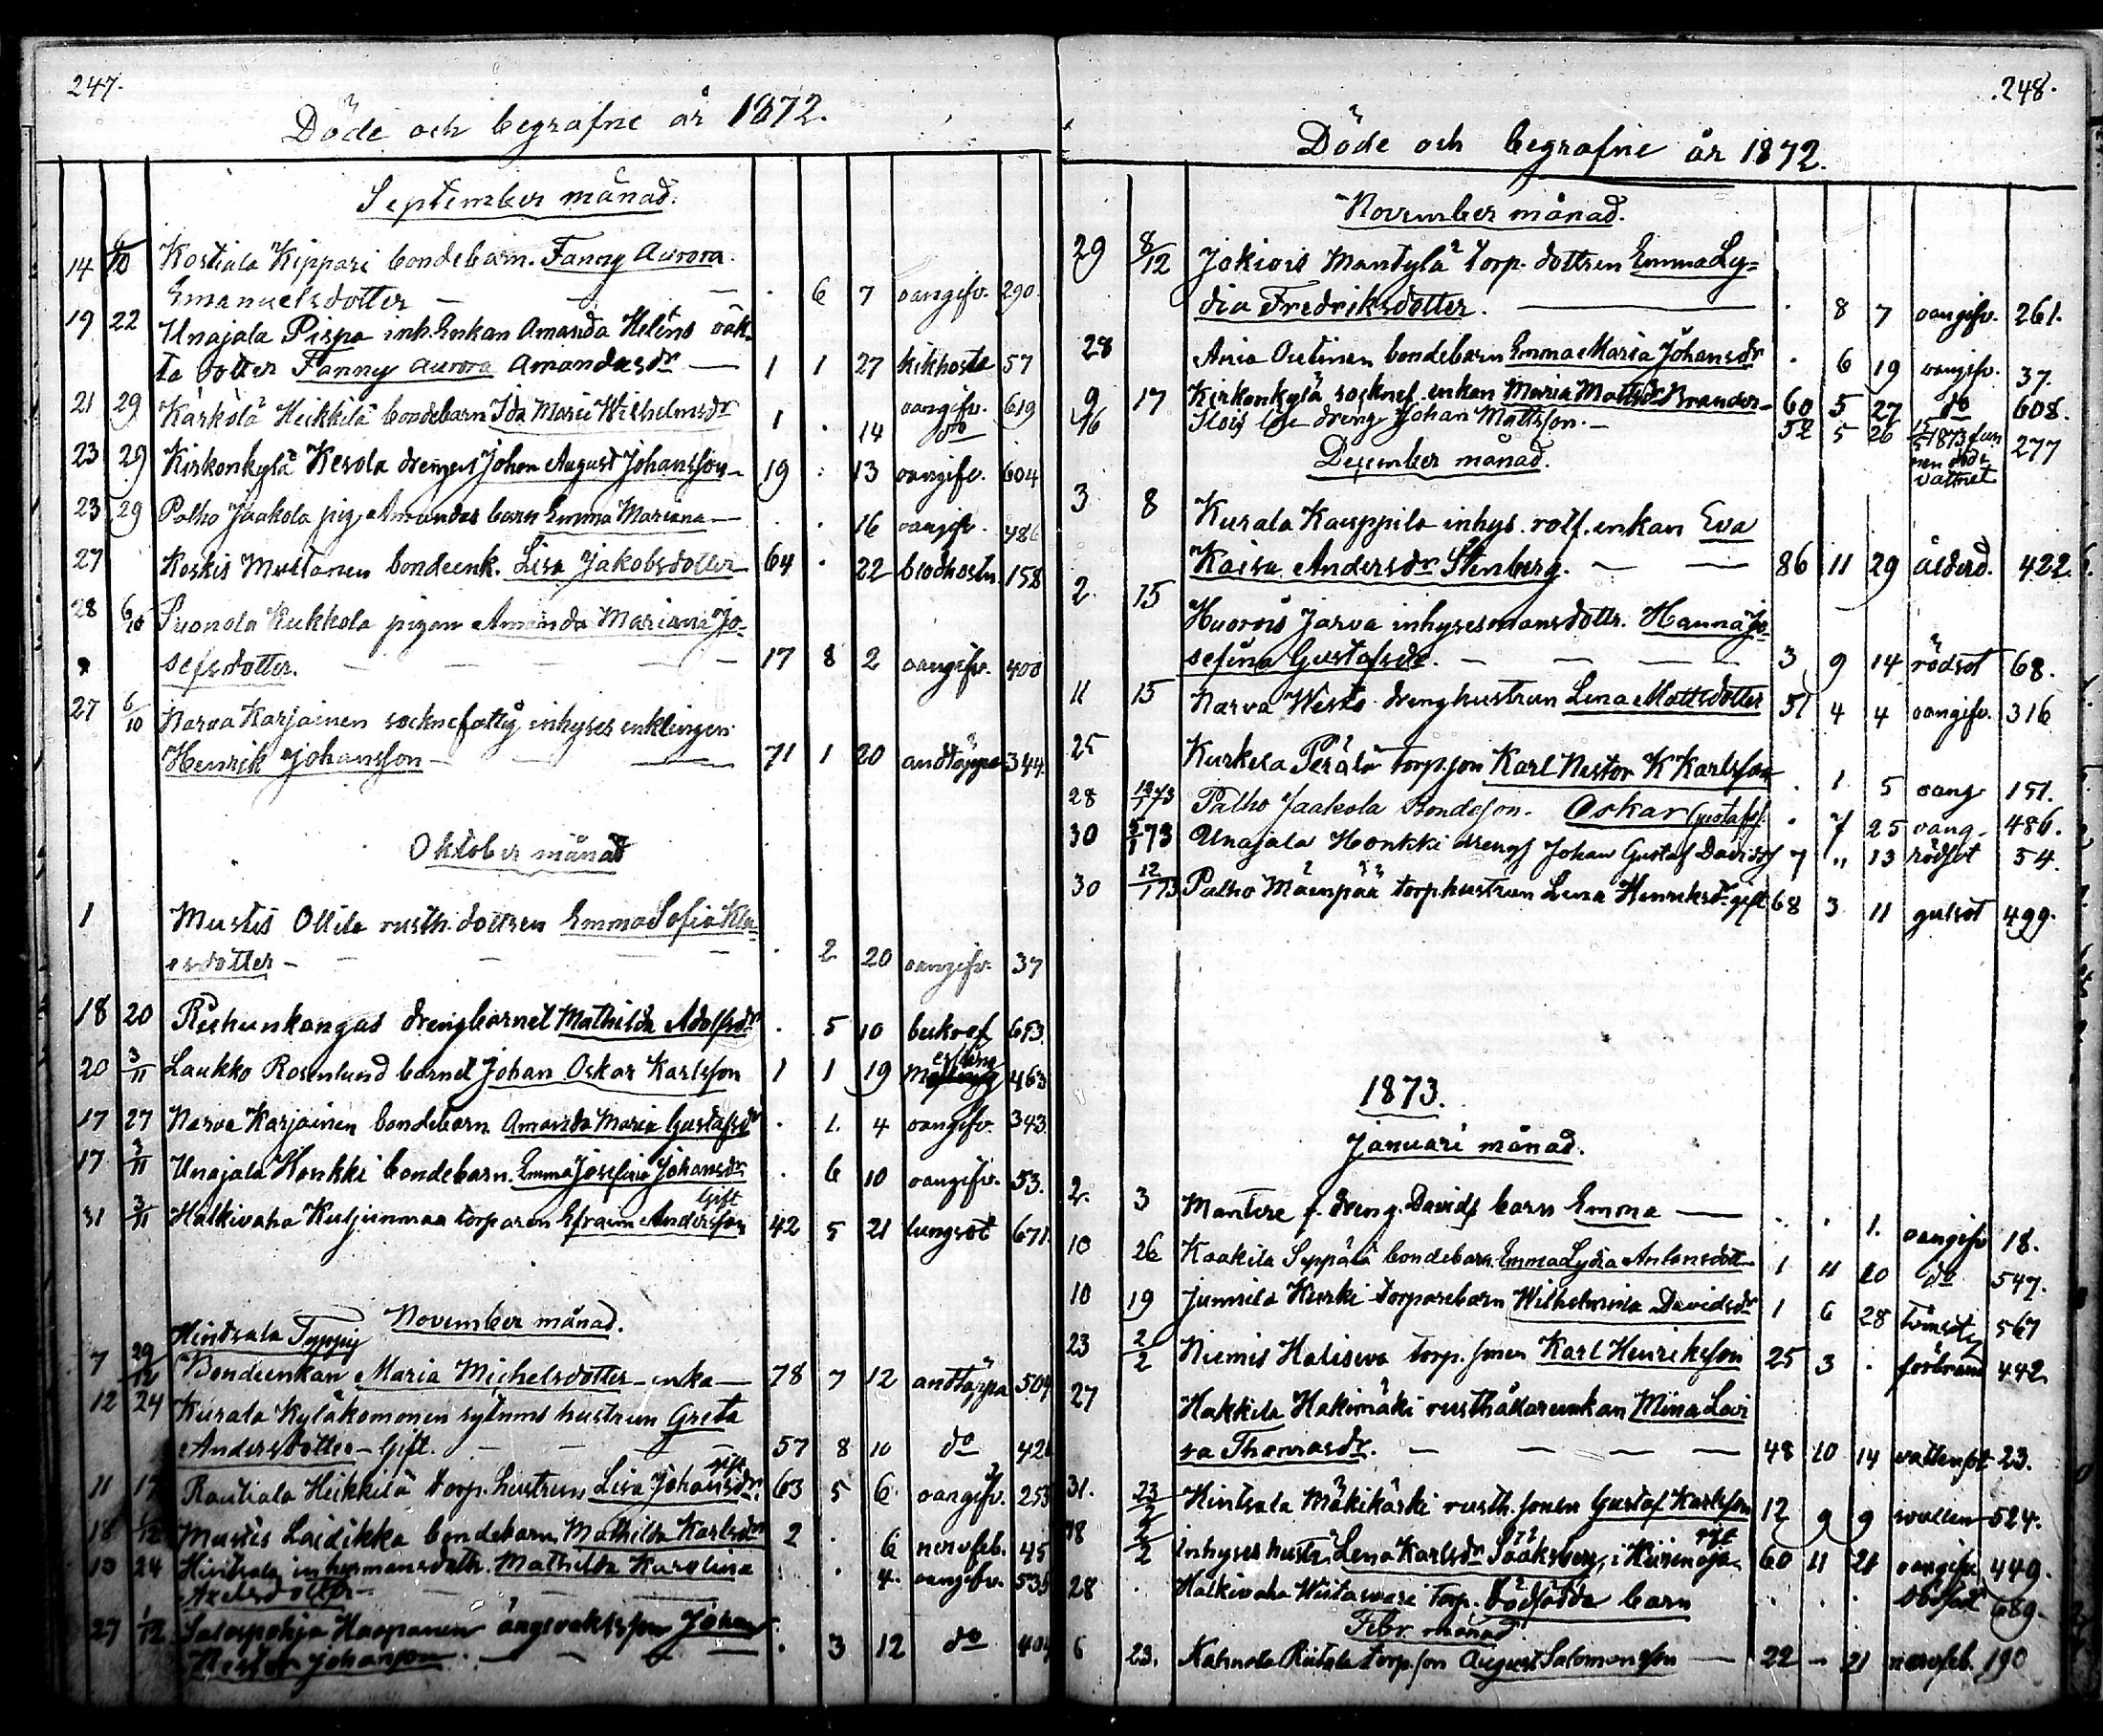 247.
Döde och begrafne år 1872.
September månad.
14 6/10 Kostiala Kippari bondebarn. Fanny Aurora
Emanuelsdotter — — — . 6 7 oangifv. 290.
19 22 Unajala Pispa inh. Enkan Amanda Heléns oäk-
ta dotter Fanny Aurora Amandasdr — 1 1 27 kikhosta 57
21 29 Kärkölä Heikkilä bondebarn Ida Maria Wilhelmsdr 1 . 14 oangifv. do 619
23 29 Kirkonkylä Kesola drengens Johan August Johansson 19 : 13 oangifv. 604
23 29 Palho Jaakola pig. Amandas barn Emma Mariana — . . 16 oangifv. 486
27 Koskis Mustanen bondeenk. Lisa Jakobsdotter 64 . 22 blodhostn. 158
28 6/10 Suonola Kukkola pigan Amanda Mariana Jo-
sefsdotter. — — — — — 17 8 2 oangifv. 400
27 6/10 Narva Karjainen socknefattig inhyses enklingen
Henrik Johansson — — — 71 1 20 andtäppa 344.
Oktober månad
1 Mustis Ollila rusth. dottren Emma Sofia Kla-
esdotter — — — — . 2 20 oangifv. 37
18 20 Riihunkangas drengbarnet Mathilda Adolfsdr . 5 10 bukref 653.
20 3/11 Laukko Rosenlund barnet Johan Oskar Karlsson 1 1 19 messling 463
17 27 Narva Karjainen bondebarn Amanda Maria Gustafsdr . 1. 4 oangifv. 343.
17 3/11 Unajala Honkki bondebarn. Emma Josefina Johansdr . 6 10 oangifv. 53.
gift
31 3/11 Halkivaha Kuljunmaa torparen Efraim Andersson 42 5 21 lungsot 671.
November månad.
Hintsala Typpy
7 29/12 Bondeenkan Maria Michelsdotter — enka — 78 7 12 andtäppa 504
12 24 Kurala Kyläkomonen sytnms hustrun Greta
Andersdotter — Gift. — — — — 57 8 10 do 421
gift
11 17 Rautiala Heikkilä torp. hustrun Lisa Johansdr. 63 5 6 oangifv. 253
18 1/12 Mustis Laidikka bondebarn Mathilda Karlsdr 2 . 6 nervfeb. 45
13 24 Hintsala inhysmansdottr. Mathilda Karolina . . 4. oangifv. 535
Axelsdotter — — —
27 1/12 Salospohja Haapanen ängsvaktsson Johan
Nestor Johansson. — — — . 3 12 do 404
248.
Döde och begrafne år 1872.
November månad.
29 8/12 Jokiois Mäntylä torp. dottren Emma Ly-
dia Fredriksdotter. — . 8 7 oangifv. 261.
28 Ania Outinen bondebarn Emma Maria Johansdr . 6 19 oangifv. 37.
9 17 Kirkonkylä socknef. enkan Maria Mattsdr Brander 60 5 27 do 608.
16 Ilois lös dreng Johan Mattsson. — 52 5 26 15/5 1873 fun 277
nen död i
vattnet
December månad.
3 8 Kurala Kauppila inhys. rotf. enkan Eva
Kaisa Andersdr Stenberg. — — 86 11 29 ålderd. 422.
2. 15 Huorois Jarva inhysesmansdottr. Hanna Jo-
sefina Gustafsdr. — — — 3 9 14 rödsot 68.
11 15 Narva Westo drenghustrun Lena Mattsdotter 51 4 4 oangifv. 316
25 Kurkela Perälä torp. son Karl Nestor K Karlsson . 1 5 oang 151.
28 12/1 73 Palho Jaakola Bondeson. Oskar Gustafss. . 7 25 oang. 486.
30 5/1 73 Unajala Honkki drengs Johan Gustaf Davidss 7 „ 13 rödsot 54.
30 12/1 73 Palho Mäenpää torphustrun Lena Henriksdr gift 68 3 11 gulsot 499.
1873.
Januari månad.
2. 3 Mantere f. dreng. Davids barn Emma — . . 1. oangifv 18.
10 26 Kaakila Seppälä bondebarn. Emma Lydia Antonsdott — 1 11 20 do 547.
10 19 Jumsila Kurki torparebarn Wilhelmina Davidsdr 1 6 28 567
23 2/2 Niemis Halisewa torp. sonen Karl Henriksson 25 3 . förbränd 442.
27 Hakkila Hakimäki rusthållarenkan Mina Lovi
sa Thomasdr. — — — 48 10 14 vattensot 23.
31. 23/2 Hintsala Mäkikärki rusth. sonen Gustaf Karlsson 12 9 9 svullen 524.
gift
18 2/2 inhyses hustr. Lena Karlsdr Sääksberg, i Kiirenoja 60 11 21 oangifv. 449.
28 . Halkivaha Wiitaware torp. dödfödda barn . . . dödföd 689.
Febr månad
6 23. Kahnala Riitala torp. son August Salomonsson — 22 — 21 nervfeb. 190